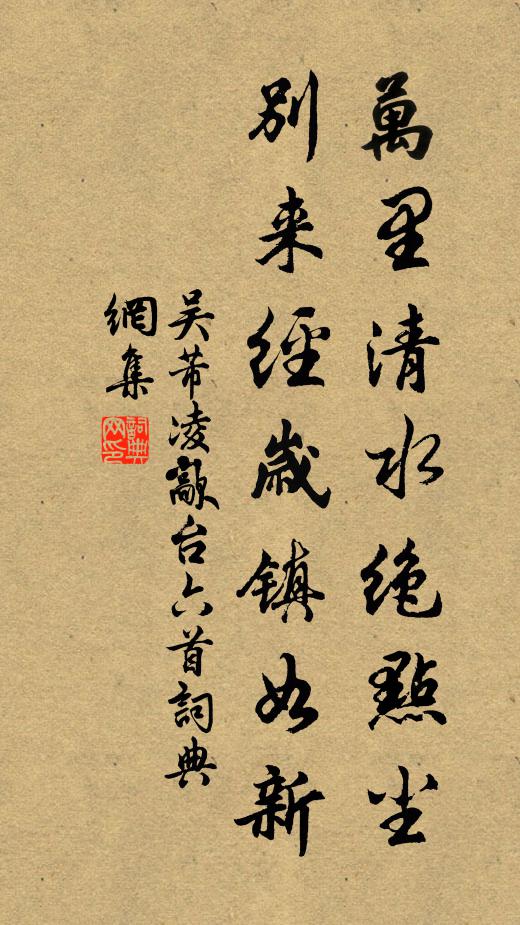 萬里清水絶點尘
别来經歲鎮如新
吴芾凌歊台六首詞典
網集
詞典网印